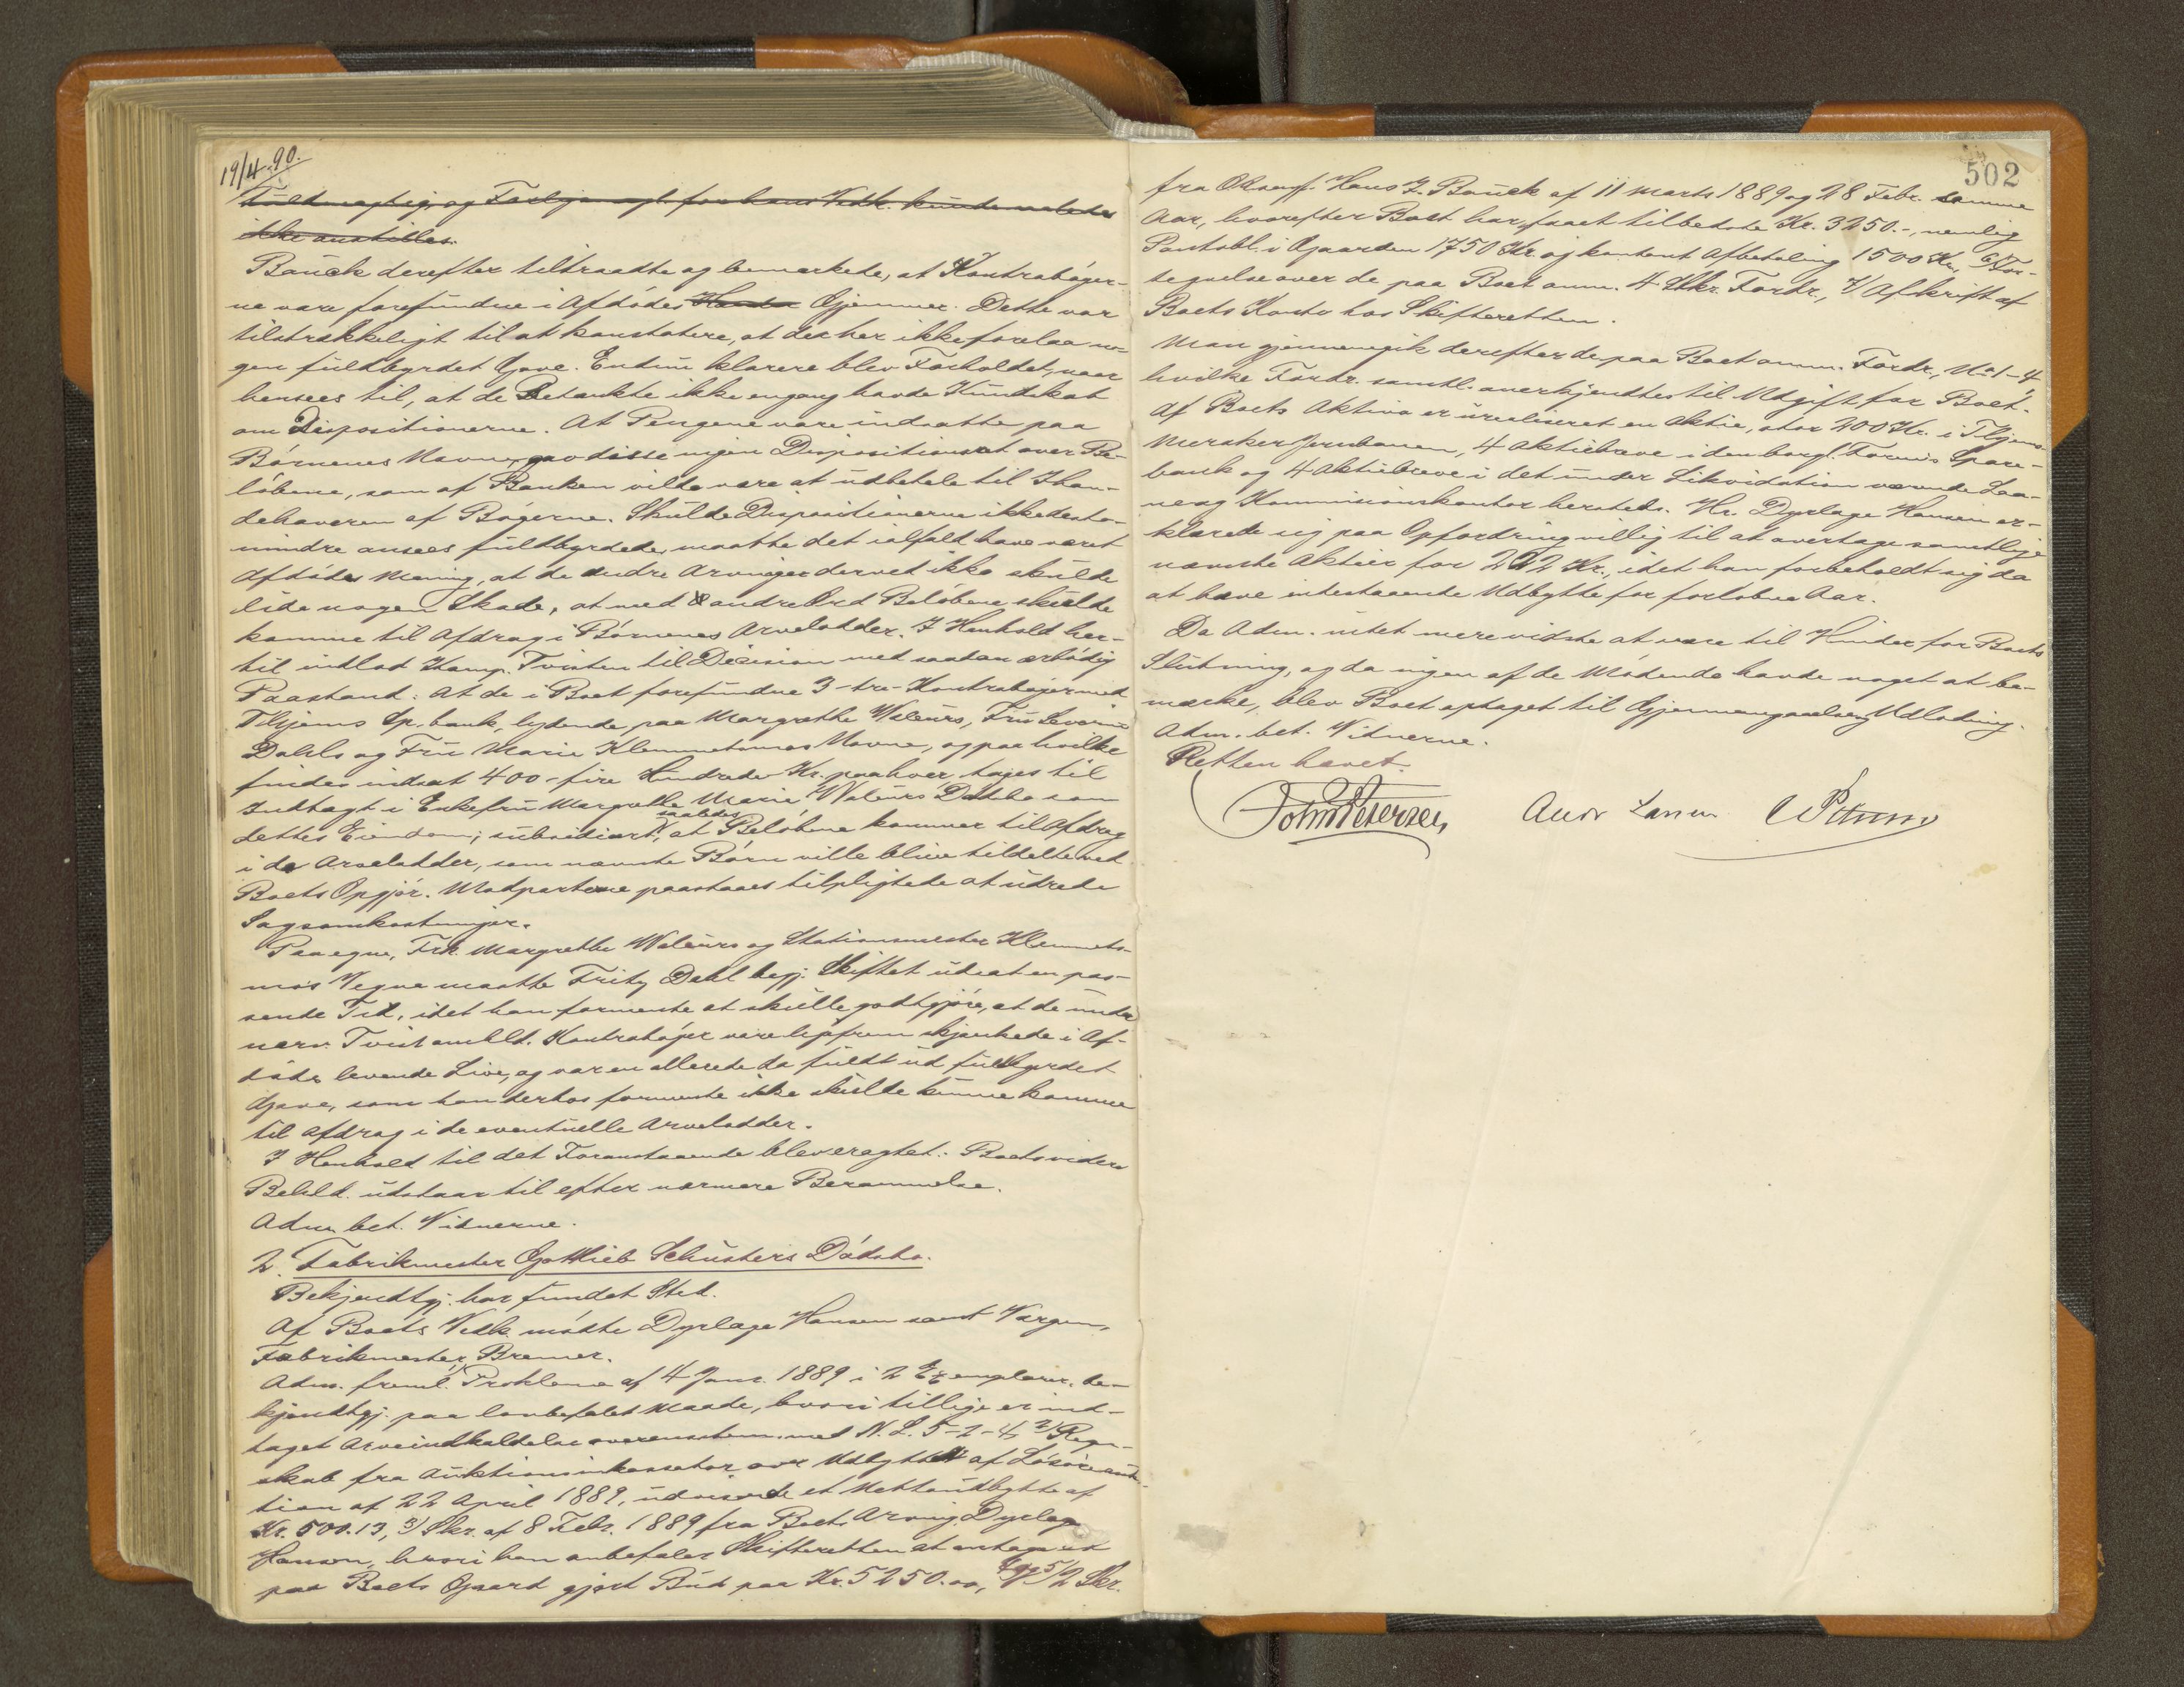 19/4 90.
Fuldmægtig og Forlig for hans Vedk. kunde saaledes
ikke anstilles.
Bauck derefter tiltraadte og bemærkede, at Kontrabøger-
ne vare forefundne i Afdødes Gjemmer. Dette var
tilstrækkeligt til at konstatere, at der her ikke forelaa no-
gen fuldbyrdet Gave. Endnu klarere blev Forholdet, naar
hensees til, at de Betænkte ikke engang havde Kundskab
om Dispositionerne. At Pengene vare indsatte paa
Børnenes Navne, gav disse ingen Dispositionsret over Be-
løbene, som af Banken vilde være at udbetale til Ihæn-
dehaveren af Bøgerne. Skulde Dispositionerne ikkedesto-
mindre ansees fuldbyrdede, maatte det ialfald have været
Afdødes Mening, at de andre Arvinger derved ikke skulde
lide nogen Skade, at med andre Ord Beløbene skulde
komme til Afdrag i Børnenes Arvelodder. I Henhold her-
til indlod Komp. Tvisten til Decision med saadan ærbødig
Paastand: At de i Boet forefundne 3-tre-Kontrabøger med
Thjems Sp. bank, lydende paa Margrethe Waleurs, Fru Severine
Dahls og Fru Marie Klemmetsens Navne, og paa hvilke
findes indsat 400-fire Hundrede Kr. paa hver, tages til
Indtægt i Enkefru Margrethe Marie Waleurs Dødsbo som
dettes Eiendom; subsidiært, saaledes at Beløbene kommer til Afdrag
i de Arvelodder, som nævnte Børn ville blive tildelte ved
Boets Opgjør. Modparterne paastaaes tilpligtede at udrede
Sagsomkostninger.
Paa egne, Frk. Margrethe Waleurs og Stationsmester Klemmet-
sens Vegne maatte Fritz Dahl begj. Skiftet udsat en pas-
sende Tid, idet han formente at skulle godtgjøre, at de under
nærv. Tvist omhlde. Kontrabøger vare ligefrem skjenkede i Af-
dødes levende Live, og var en allerede da fuldt ud fuldbyrdet
Gave, som han derhos formente ikke skulde kunne komme
til Afdrag i de eventuelle Arvelodder.
I Henhold til det Foranstaaende blev eragtet: Boets videre
Behld. udstaar til efter nærmere Berammelse.
Adm. bet. Vidnerne.
2. Fabrikmester Gottlieb Schusters Dødsbo.
Bekjendtgj. har fundet Sted.
Af Boets Vedk. mødte Dyrlæge Hansen samt Værgen,
Fabrikmester Bremer.
Adm. freml. 1) Proklama af 4 Janr. 1889 i 2 Exemplarer, be-
kjendtgj. paa lovbefalet Maade, hvori tillige er ind-
taget Arveindkaldelse overensstem. med N. L. 5-2-4, 2) Regn-
skab fra Auktionsinkassator over Udbyttet af Løsøreauk-
tion af 22 April 1889, udvisende et Nettoudbytte af
Kr. 500.13, 3) Skr. af 8 Febr. 1889 fra Boets Arving Dyrlæge
Hansen, hvori han anbefaler Skifteretten at antage et
paa Boets Gaard gjort Bud paa Kr. 5250.00, 4 og 5/ 2 Skr.
502
fra Oksagf. Hans J. Bauck af 11 Marts 1889 og 28 Febr. samme
Aar, hvorefter Boet har faaet tilbedste Kr. 3250.-, nemlig
Pantobl. i Gaarden 1750 Kr. og kontant Afbetaling 1500 Kr., 6/ For-
tegnelse over de paa Boet anm. 4 Stkr. Fordr., 7/ Afskrift af
Boets Konto hos Skifteretten.
Man gjennemgik derefter de paa Boet anm. Fordr., No 1-4,
hvilke Fordr. samtl. anerkjendtes til Udgift for Boet.
Af Boets Aktiva er urealiseret en Aktie, stor 400 Kr. i Thjems-
Meraker Jernbanen, 4 Aktiebreve i den borgl. Forenis Spare-
bank og 4 Aktiebreve i det under Likvidation værende Laa-
ne og Kommissionskontor hersteds. Hr. Dyrlæge Hansen er-
klærede sig paa Opfordring villig til at overtage samtlige
nævnte Aktier for 212 Kr., idet han forbeholdt sig da
at hæve intestaaende Udbytte for forløbne Aar.
Da Adm. intet mere vidste at være til Hinder for Boets
Slutning, og da ingen af de Mødende havde noget at be-
mærke, blev Boet optaget til Gjennemgaaelse og Udlodning.
Adm. bet. Vidnerne.
Retten hævet.
John Petersen, Andr Larsen